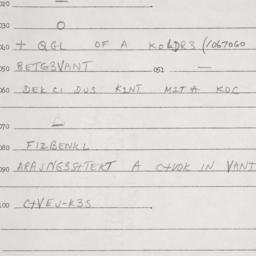 020 —
030 O
040 + QGL OF A KOLDR3 (1067060
050 BETG3VANT 051 —
060 DEK CI DUS K2NT M2T A KOC
070 △
080 FIZBENKL
090 ARAJNG3S+TEKT A C+UOK IN VANT
100 C+VEJ-K3S